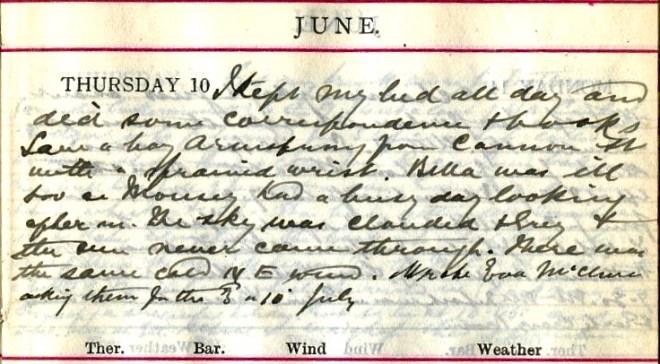 JUNE.
THURSDAY 10 I kept my bed all day and
did some correspondence & books
Saw a boy from Cannon St
with a sprained wrist. Bella was ill
too so Mousey had a busy day looking
after us. The sky was clouded & grey &
the sun never came through. There was
the same cold N E wind. Wrote Eva McClure
asking them for the 3 10 July
Ther. Bar. Wind Weather